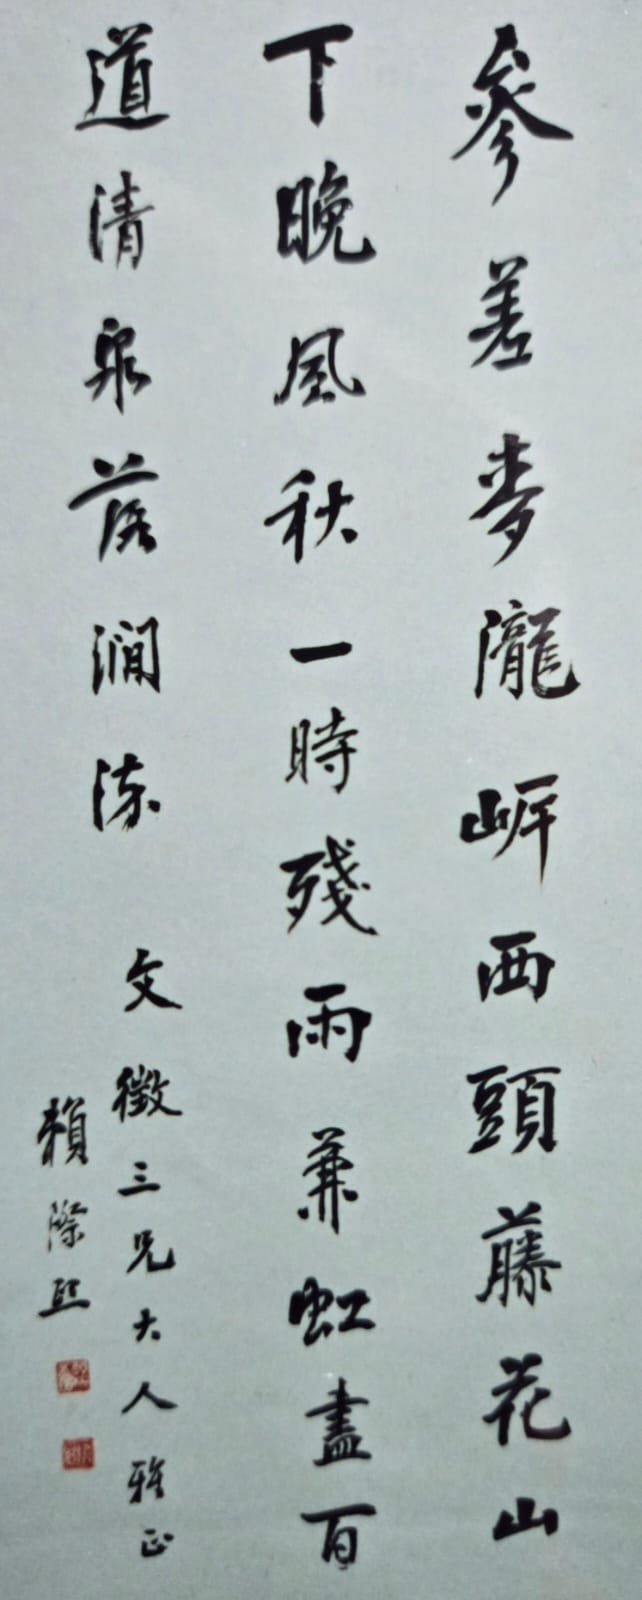 參差麥隴㟁西頭藤花山
下晚風秋一時殘雨兼虹盡百
道清泉落澗流
文徵三兄大人雅正
賴際熙